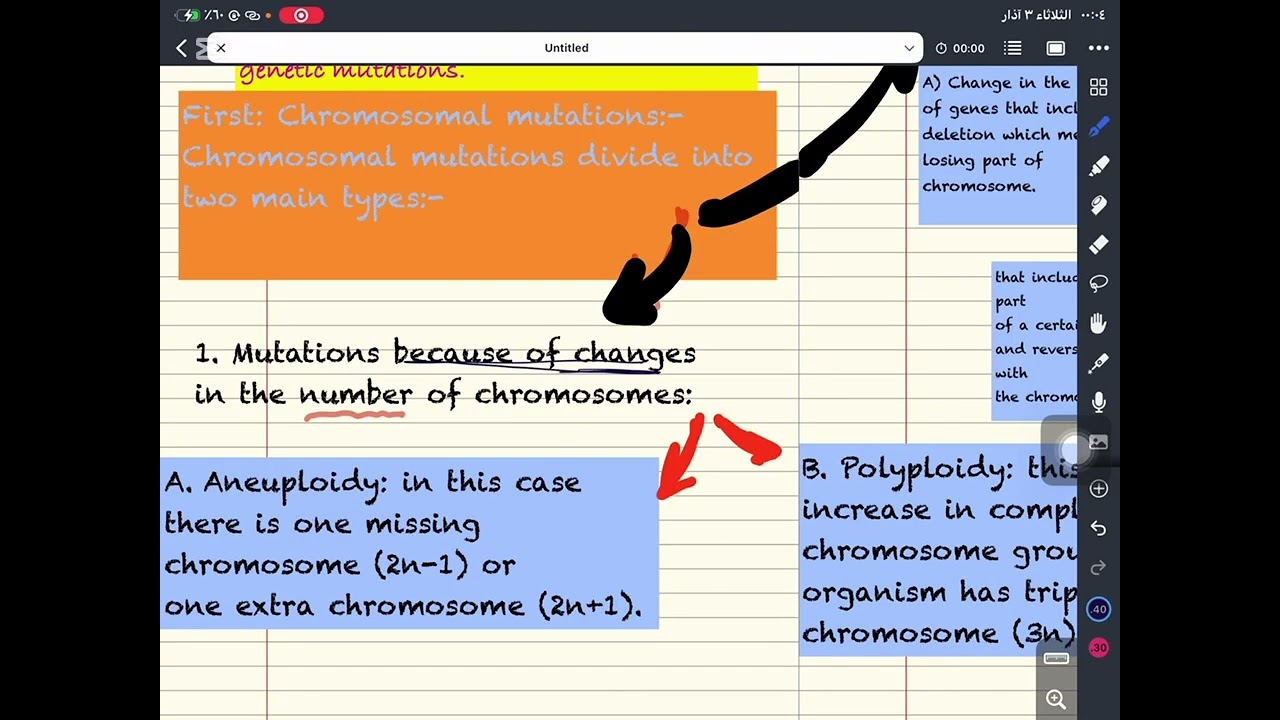 ٪٦٠
الثلاثاء ٣ آذار
٠٠:٠٤
Untitled
00:00
genetic mutations.
First: Chromosomal mutations:-
Chromosomal mutations divide into
two main types:-
A) Change in the
of genes that incl
deletion which me
losing part of
chromosome.
that includ
part
of a certai
and revers
with
the chromo
1. Mutations because of changes
in the number of chromosomes:
A. Aneuploidy: in this case
there is one missing
chromosome (2n-1) or
one extra chromosome (2n+1).
B. Polyploidy: this
increase in compl
chromosome grou
organism has trip
chromosome (3n)
.40
.30